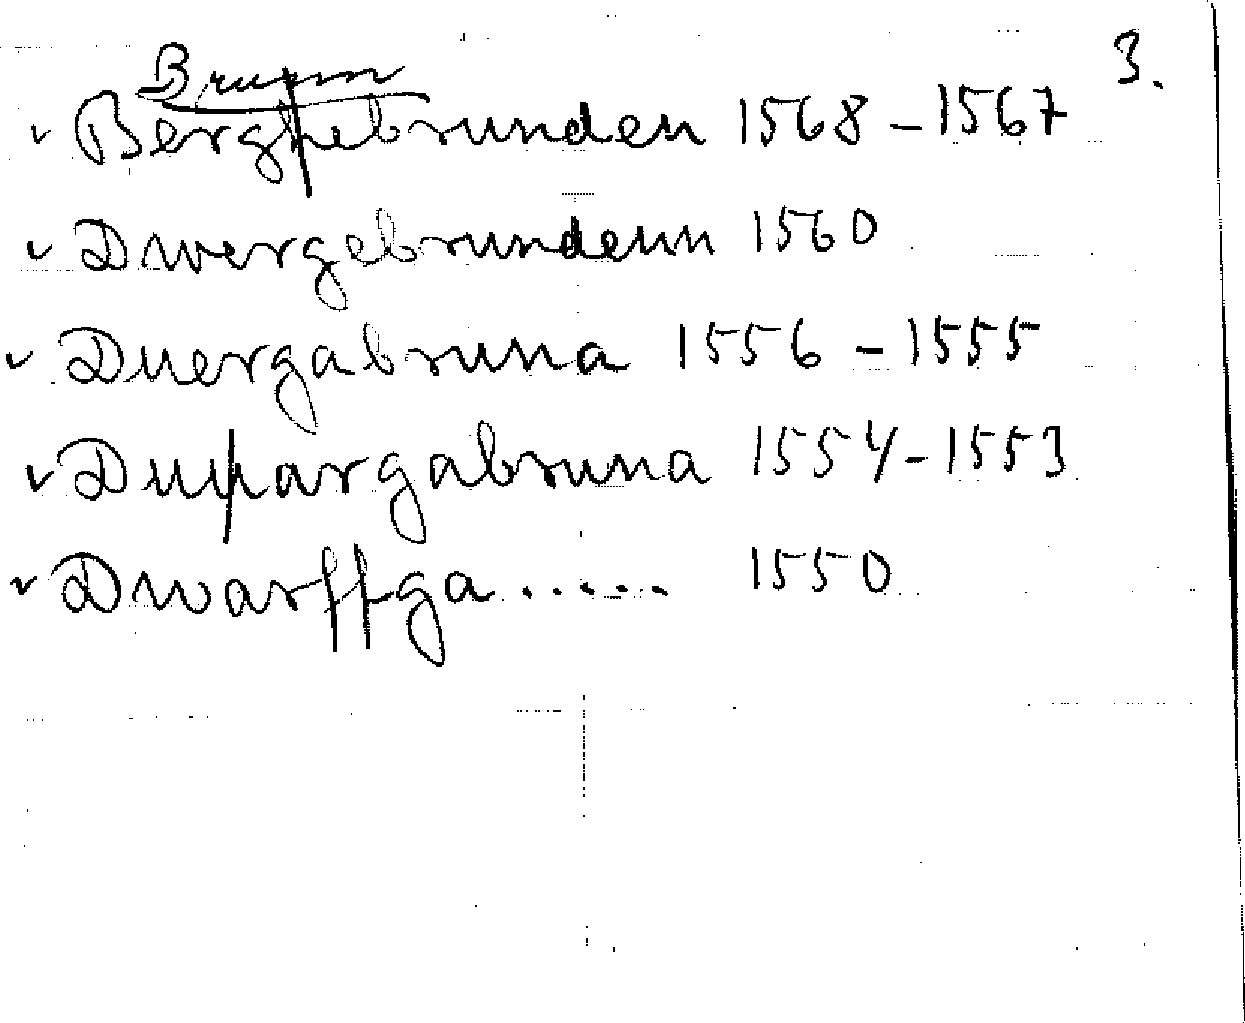 3.
Brunn
v Berghebrunden 1568 - 1567
v Dwergebrundenn 1560
v Duergabruna 1556 - 1555
v Duupargabruna 1554 - 1553
v Dwarffga ...... 1550